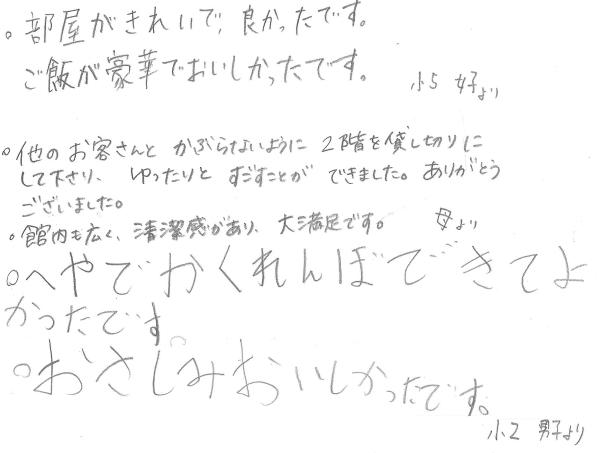 ○部屋がきれいで、良かったです。
ご飯が豪華でおいしかったです。
小5 女子より
○他のお客さんと かぶらないように 2階を貸し切りに
して下さり、 ゆったりと すごすことが できました。ありがとう
ございました。
○館内も広く、清潔感があり、大満足です。 母より
○へやでかくれんぼできてよ
かったです。
○おさしみおいしかったです。
小2 男子より